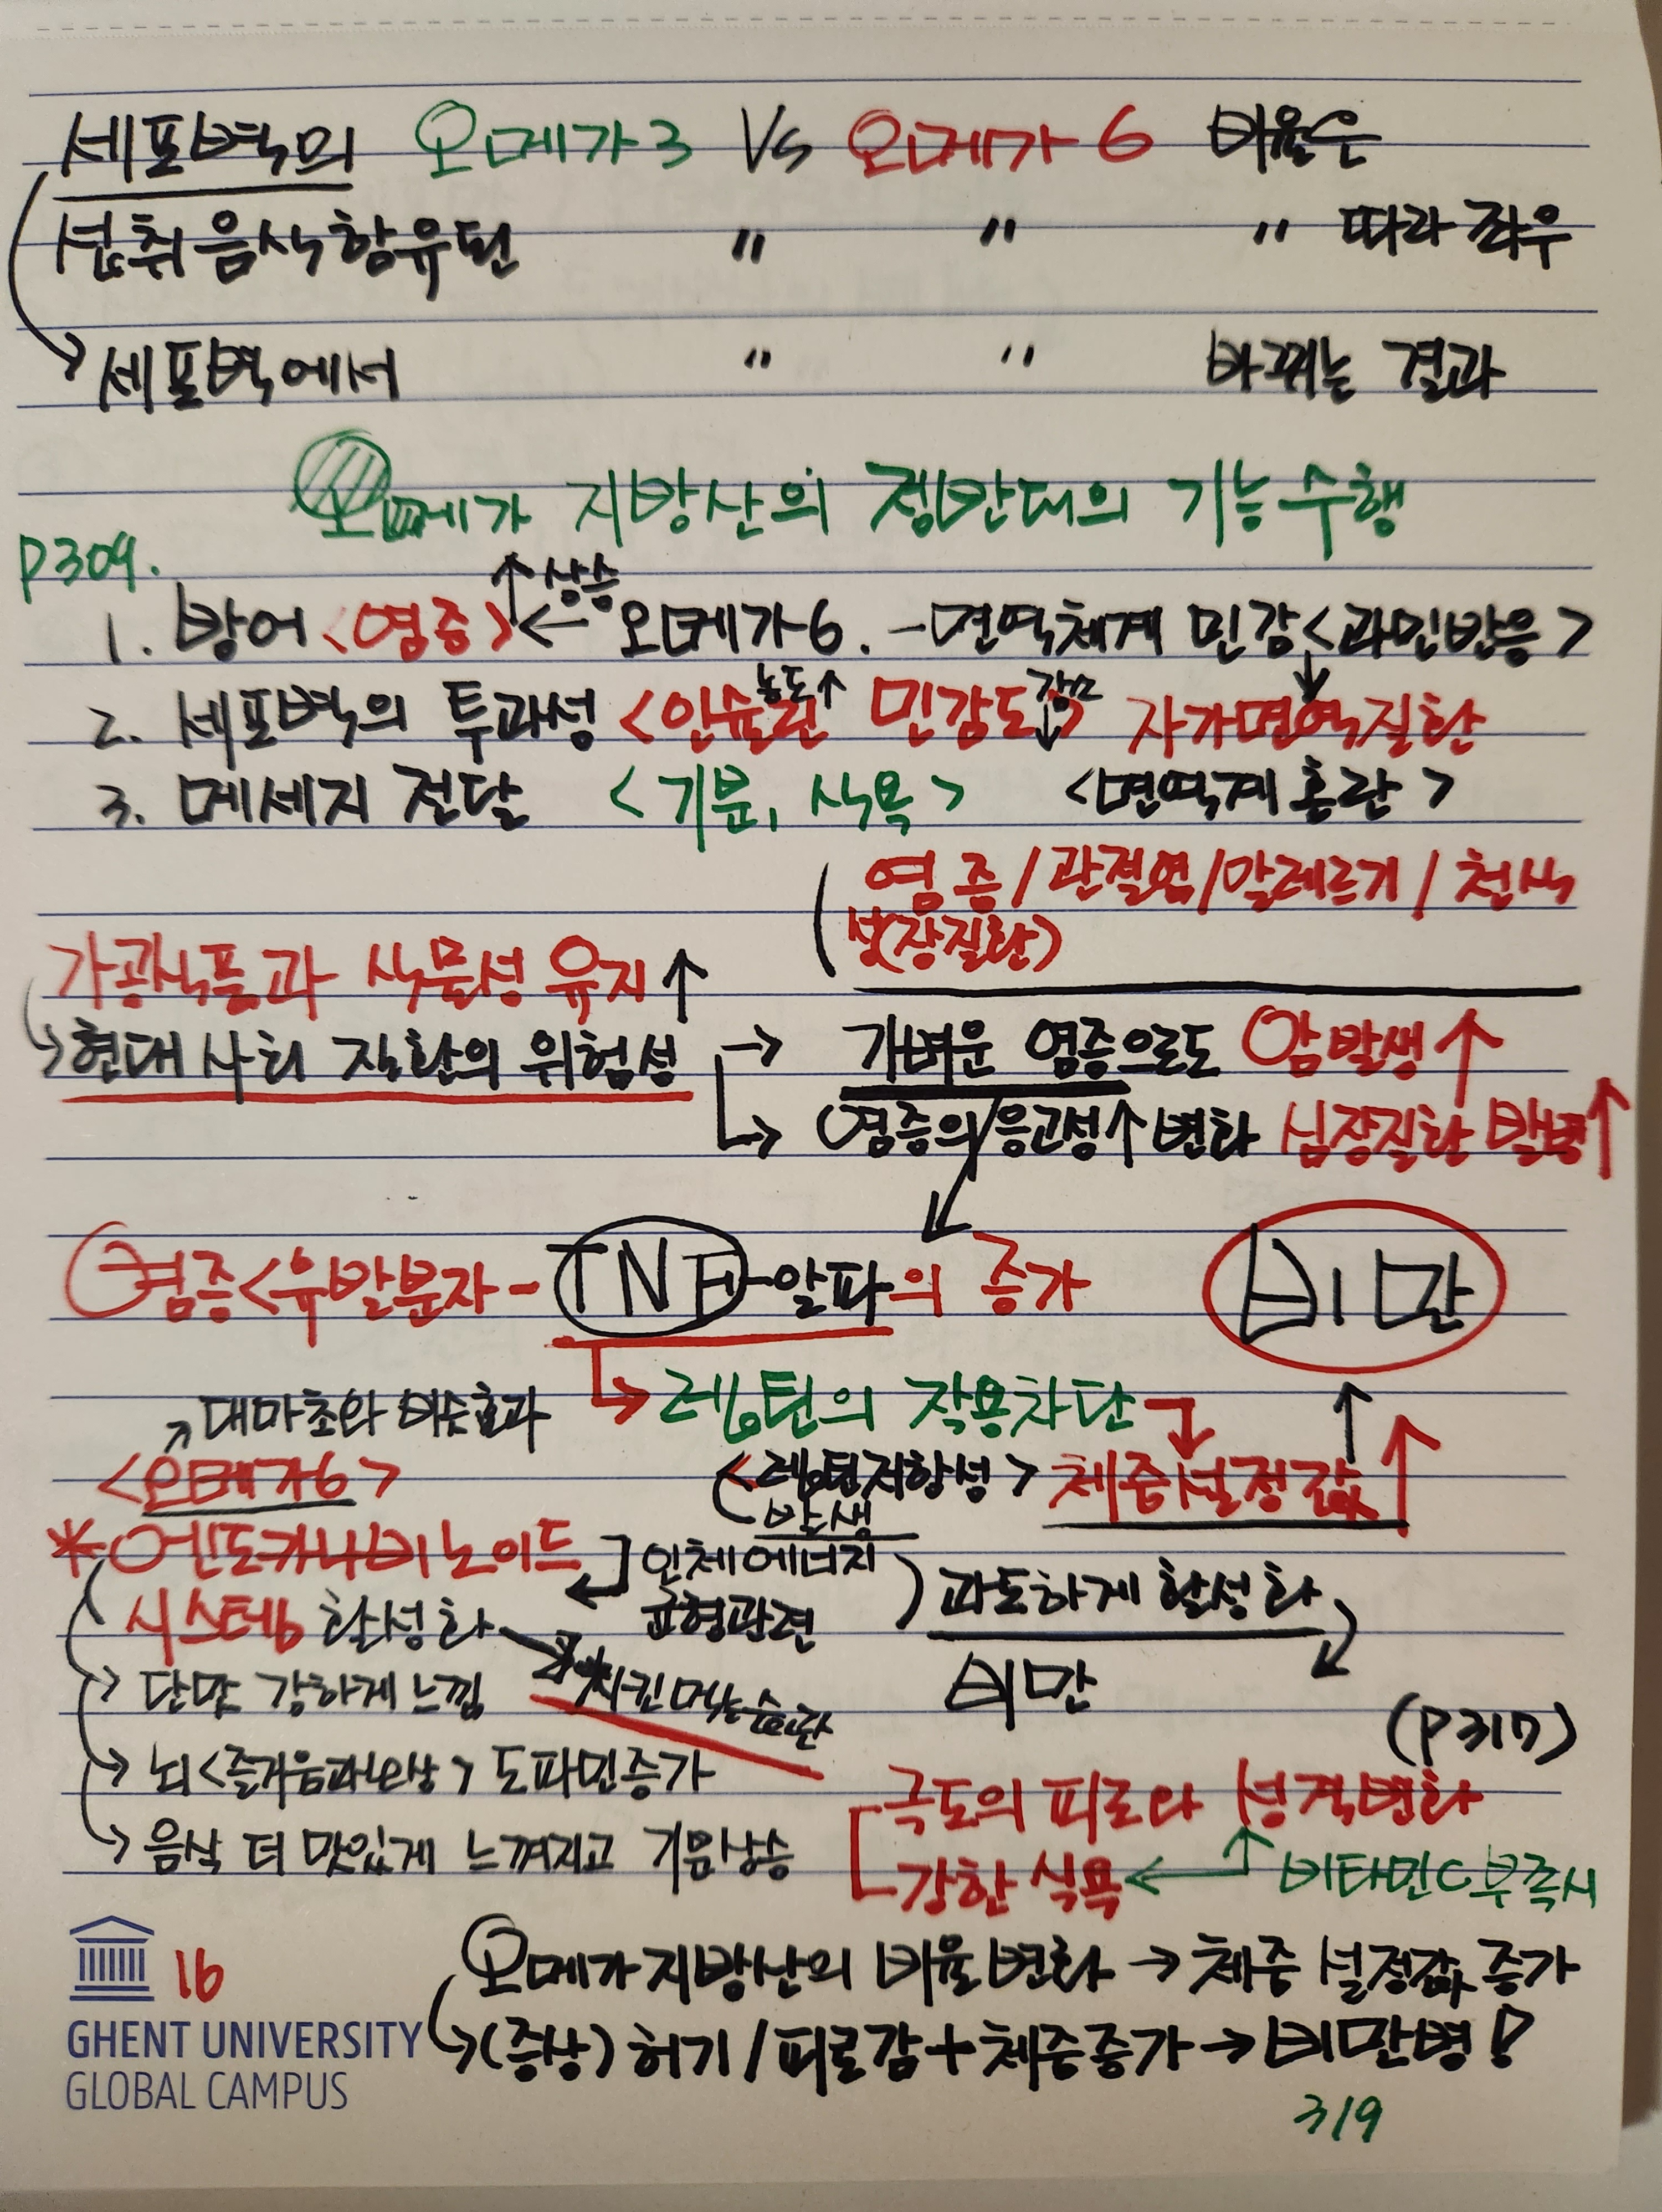 세포벽의 오메가3 Vs 오메가6 비율은
섭취음식함유된 〃 〃 〃 따라 좌우
→ 세포벽에서 〃 〃 바뀌는 결과
오메가 지방산의 정반대의 기능수행
P309.
↑상승
1. 방어 <염증> ← 오메가6. -면역체계 민감<과민반응>
농도↑ 감소
2. 세포벽의 투과성 <인슐린 민감도↓> ↓ 자가면역질환
3. 메세지 전달 <기분, 식욕> <면역계 혼란>
염증/관절염/알레르기/천식
(장질환)
가공식품과 식물성 유지↑
→현대 사회 질환의 위험성 → 가벼운 염증으로도 암발생↑
→ 염증의/응고성↑변화 심장질환 발병↑
염증<유발분자-TNF-알파의 증가 비만
→렙틴의 작용차단
↗대마초와 비슷효과
<오메가6> <렙틴저항성> 체중설정값↑
발생
*엔도카나비노이드 인체에너지
시스템 활성화 균형관련 ) 과도하게 활성화
비만
→ 단맛 강하게 느낌 치킨먹는습관
(P317)
→ 뇌<즐거움과보상> 도파민증가
극도의 피로와 성격변화
→ 음식 더 맛있게 느껴지고 기분상승
강한 식욕 ← ↑ 비타민C부족시
16
오메가지방산의 비율변화 → 체중 설정값 증가
→(증상) 허기/피로감+체중증가→비만병!
GHENT UNIVERSITY
GLOBAL CAMPUS
319